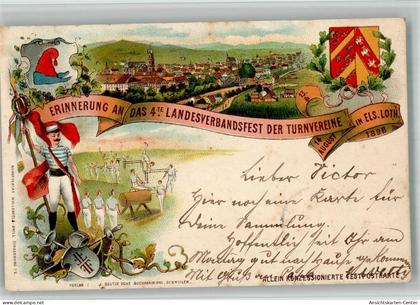 ERINNERUNG AN DAS 4TE LANDESVERBANDSFEST DER TURNVEREINE IN ELS. LOTH.
AUGUST 1898
Lieber Victor
Hier noch eine Karte für
deine Sammlung.
Hoffentlich seit Ihr am
Montag gut nach Hause gekommen
Mit
ALLEIN KONZESSIONIERTE FESTPOSTKARTE
VERLAG
BUCHHANDLUNG,
www.ansichtskarten-center.de